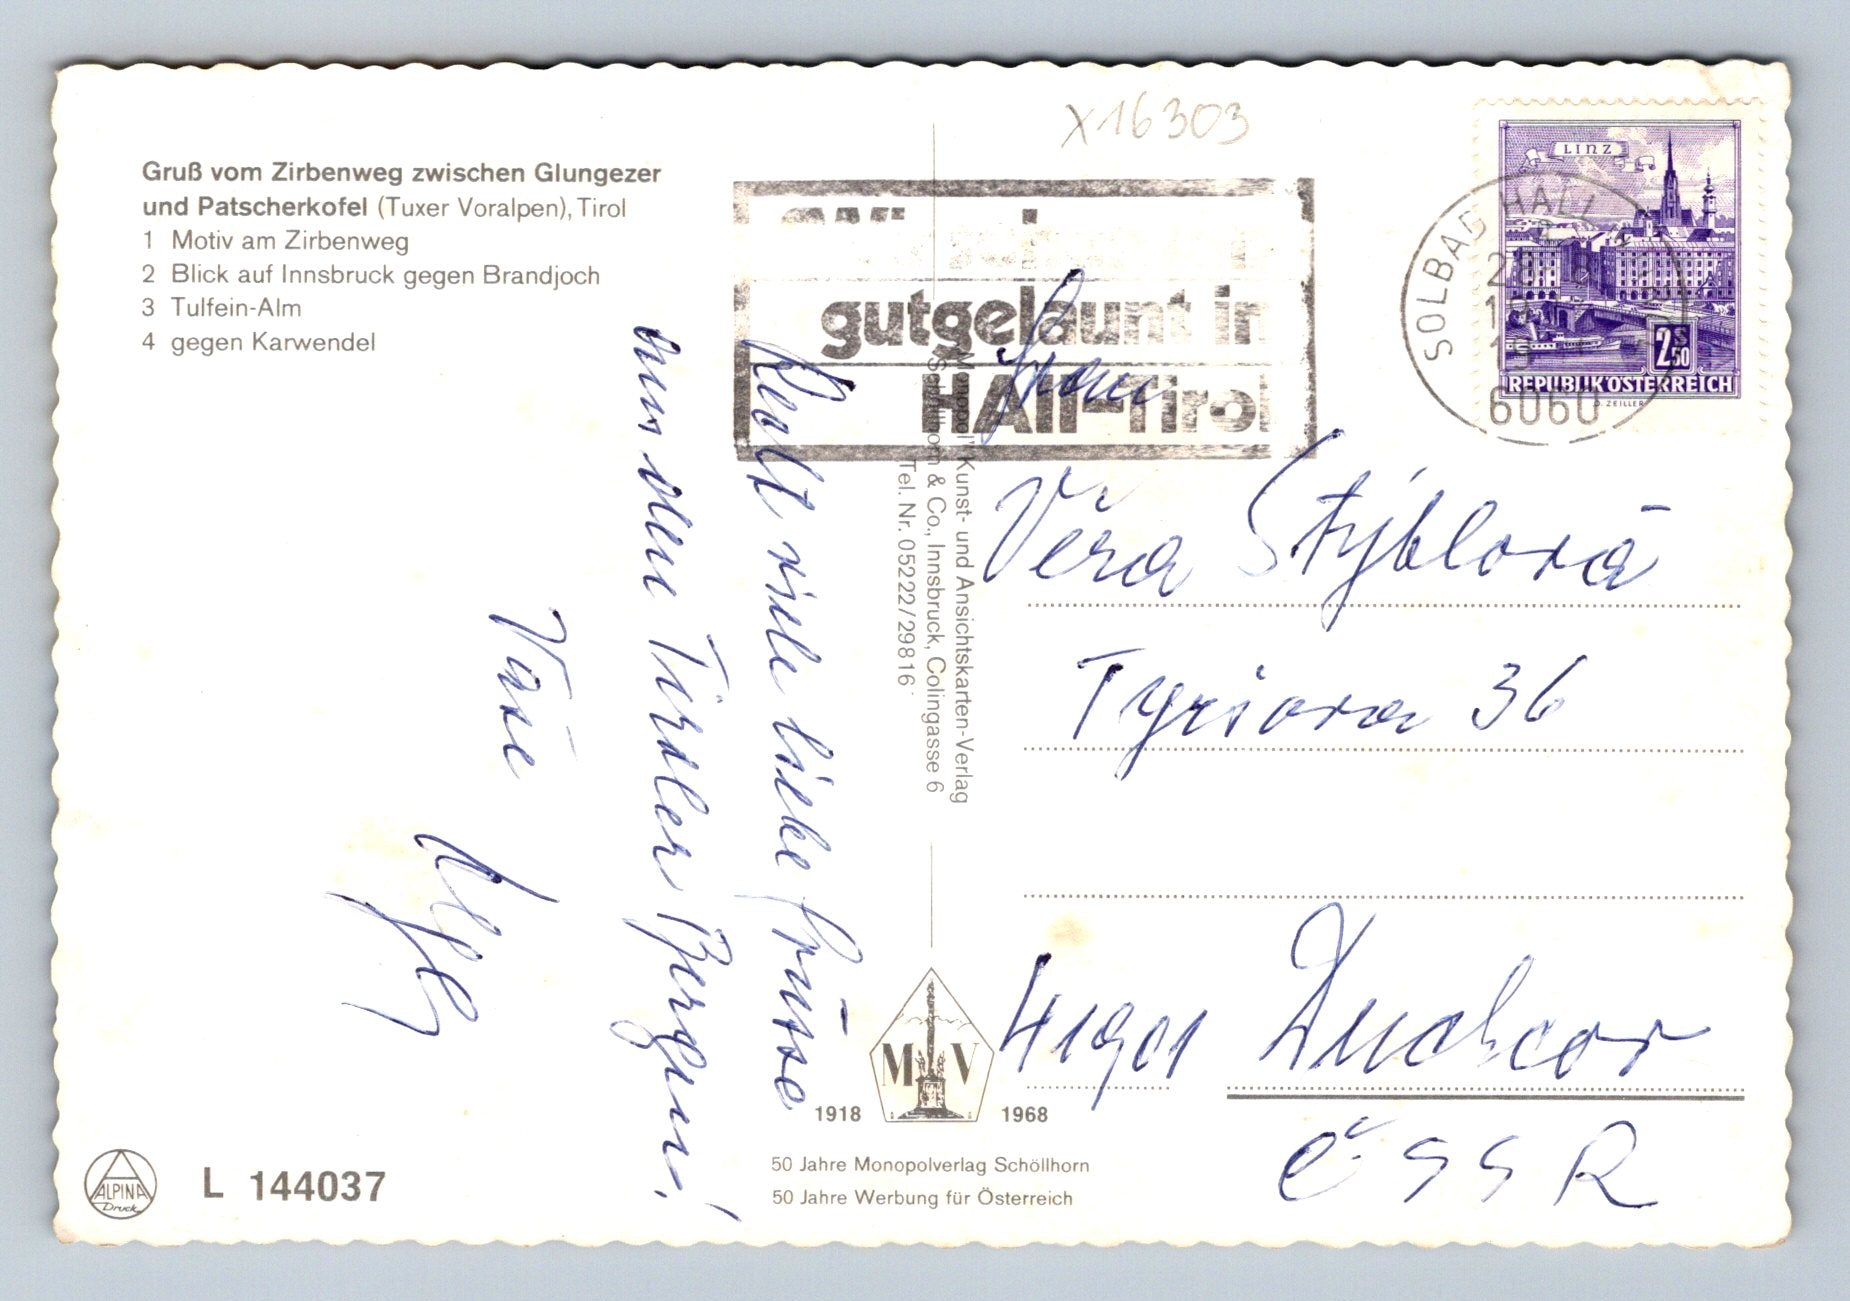 x16303
Gruß vom Zirbenweg zwischen Glungezer
und Patscherkofel (Tuxer Voralpen), Tirol
1 Motiv am Zirbenweg
2 Blick auf Innsbruck gegen Brandjoch
3 Tulfein-Alm
4 gegen Karwendel
gutgelaunt in
HAll-Tirol
LINZ
2 50
S
REPUBLIK ÖSTERREICH
O. ZEILLER
SOLBAD HALL
6060
Recht viele liebe Grüsse
aus den Tiroler Bergen!
"Monopol" Kunst- und Ansichtskarten-Verlag
Schöllhorn & Co., Innsbruck, Colingasse 6
Tel. Nr. 05222/29816
Frau
Věra Stýblová
Tyršova 36
41901 Duchcov
ČSSR
M V
1918 1968
50 Jahre Monopolverlag Schöllhorn
50 Jahre Werbung für Österreich
ALPINA
Druck
L 144037